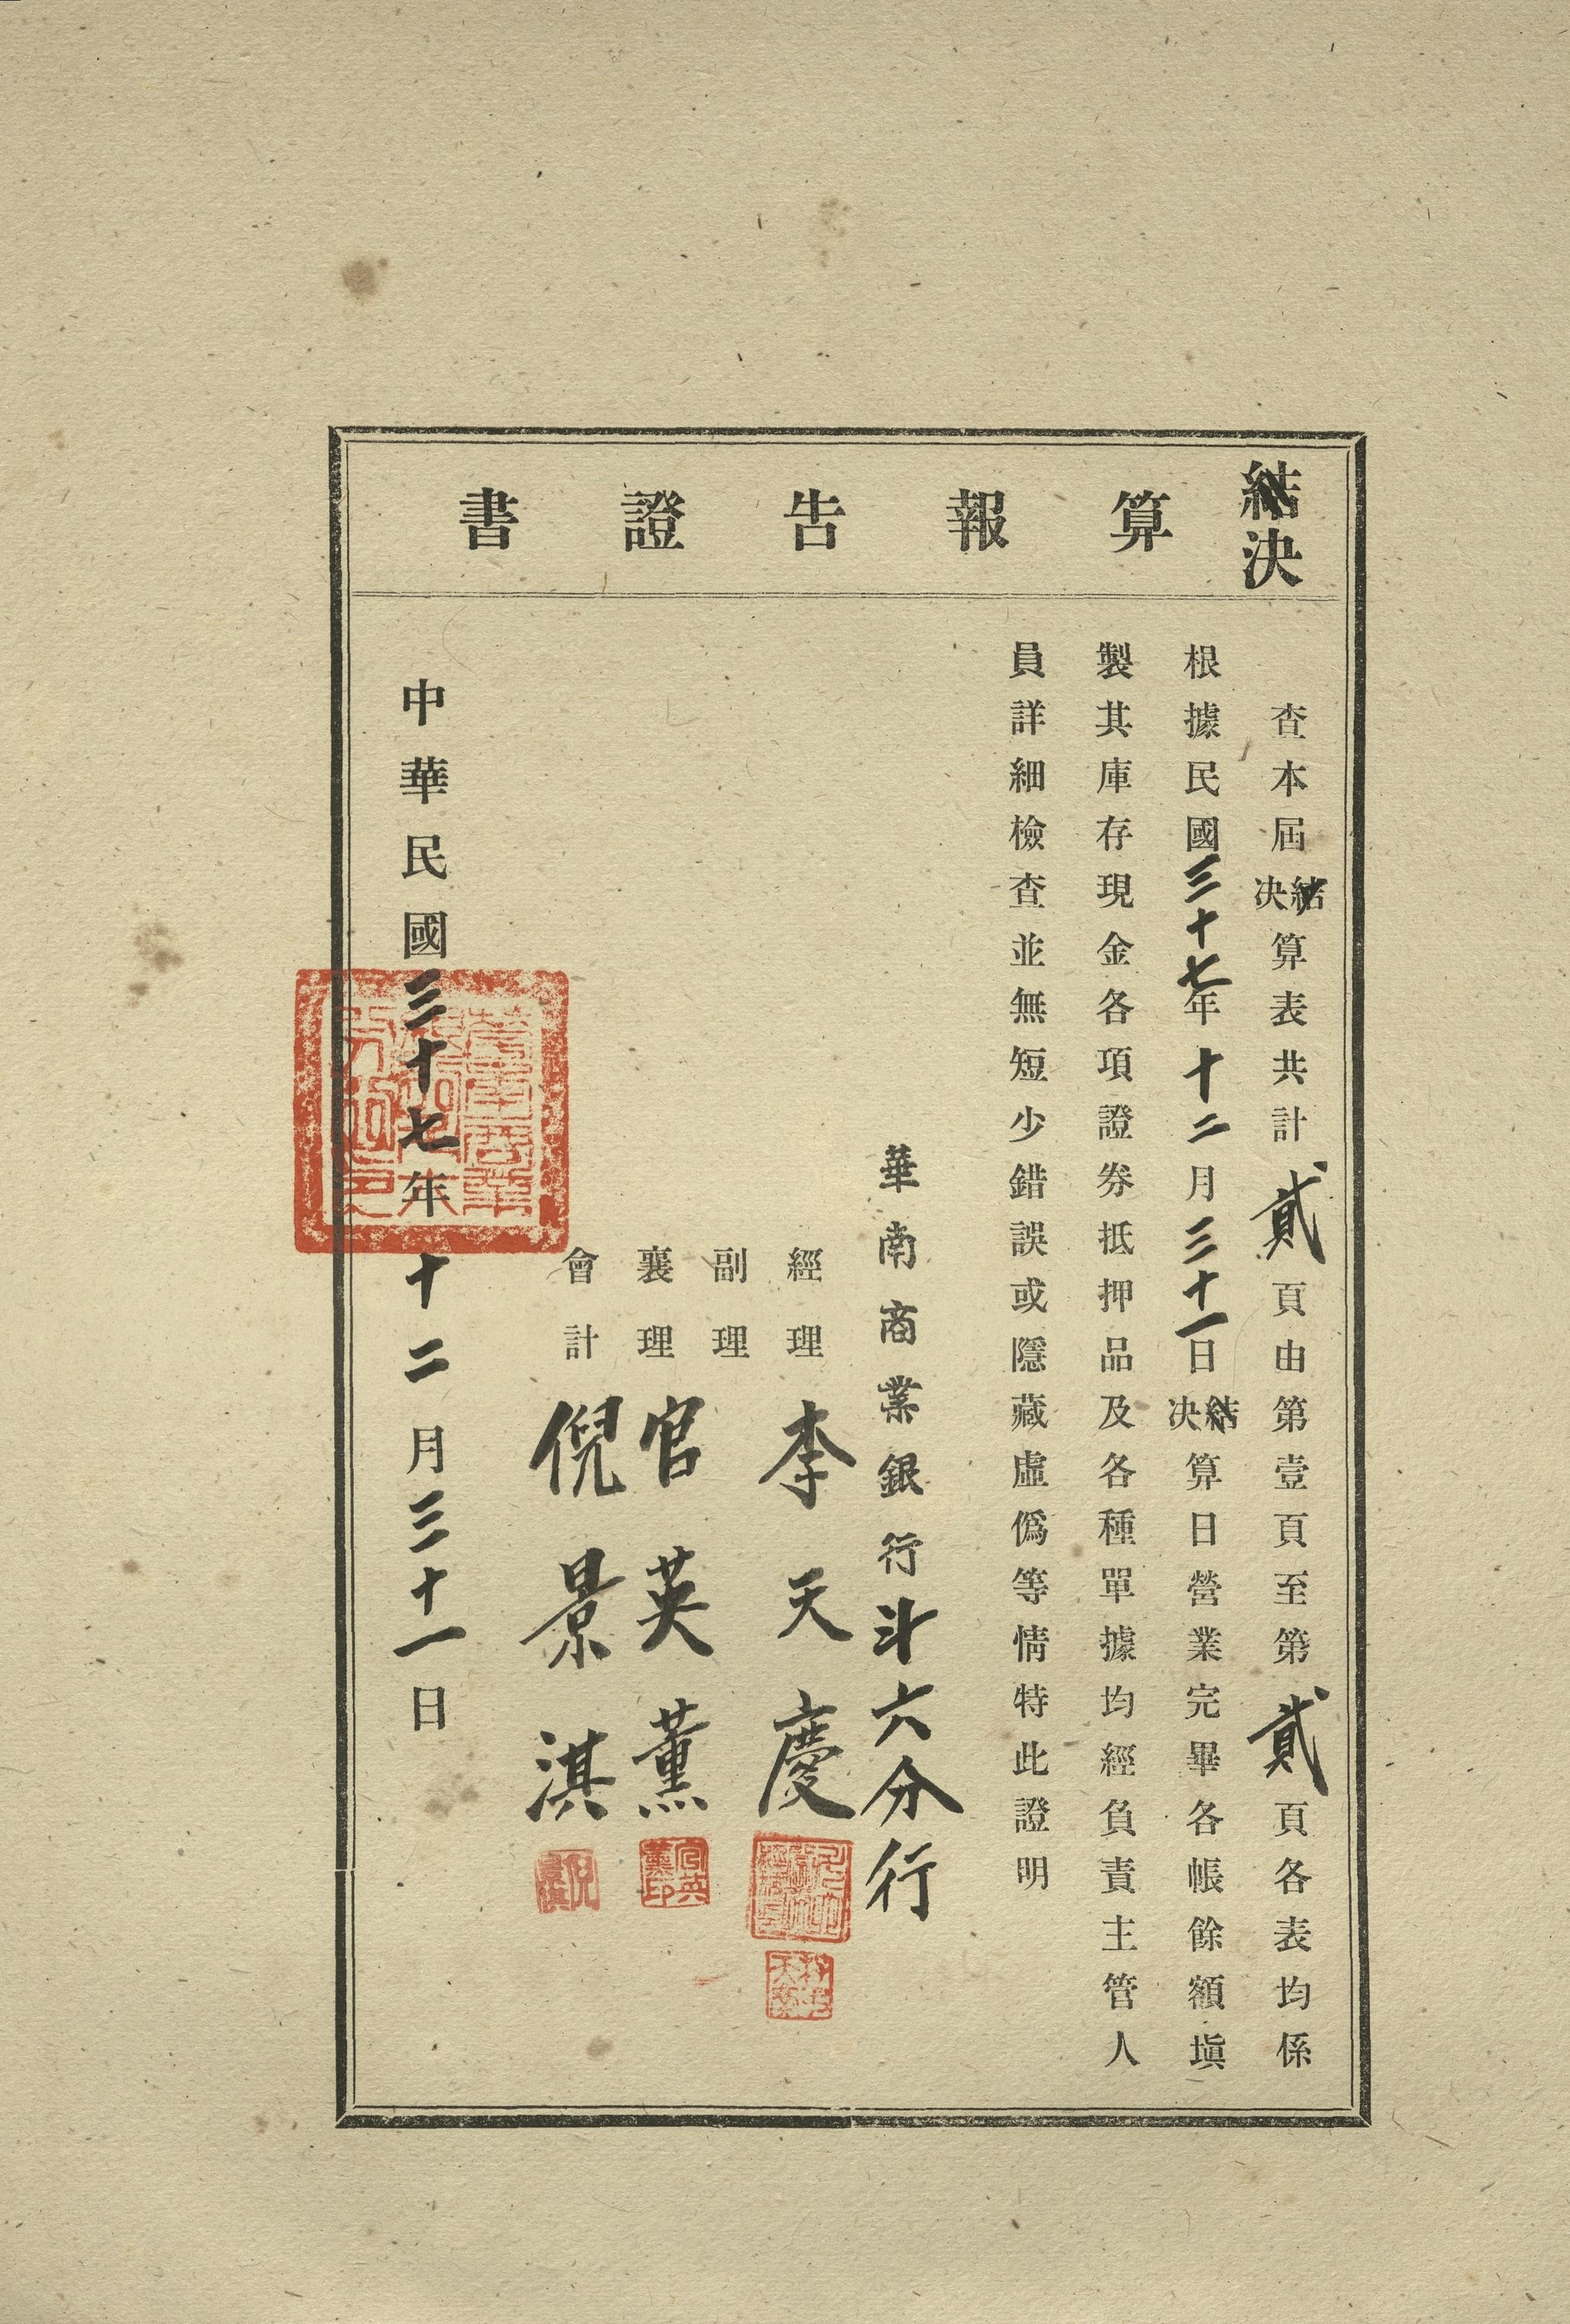 結決算報告證書
查本屆結決算表共計貳頁由第壹頁至第貳頁各表均係
根據民國三十七年十二月三十一日結決算日營業完畢各帳餘額塡
製其庫存現金各項證券抵押品及各種單據均經負責主管人
員詳細檢查並無短少錯誤或隱藏虛僞等情特此證明
華南商業銀行斗六分行
經理 李天慶
副理
襄理 官英薰
會計 倪景淇
中華民國三十七年十二月三十一日
官英薰印